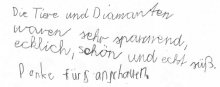 Die Tiere und Diamanten
waren sehr spannend,
ecklich, schön und echt süß.
Danke fürs anschauen